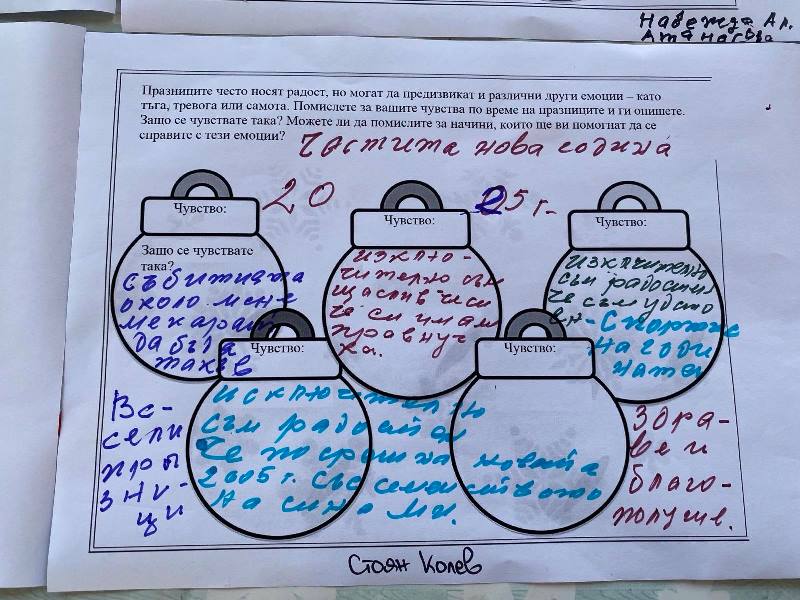 Надежда Ал.
Атанасова
Празниците често носят радост, но могат да предизвикат и различни други емоции – като
тъга, тревога или самота. Помислете за вашите чувства по време на празниците и ги опишете.
Защо се чувствате така? Можете ли да помислите за начини, които ще ви помогнат да се
справите с тези емоции?
Честита нова година
20 25 г.
Чувство:
Защо се чувствате
така?
събитията
около мене
ме карат
да бъда
такъв
Чувство:
изклю-
чително съм
щастлив чеси
че си имам
правнуч
ка.
Чувство:
изключително
съм радостен
че съм удосто
ен - Спортис
на годи
ната
Чувство:
изключително
съм радостен
че посрещна новата
2005 г. със семейството
на сина ми.
Чувство:
Ве-
сели
праз
зни-
ци
Здра-
ве и
благо-
получие.
Стоян Колев